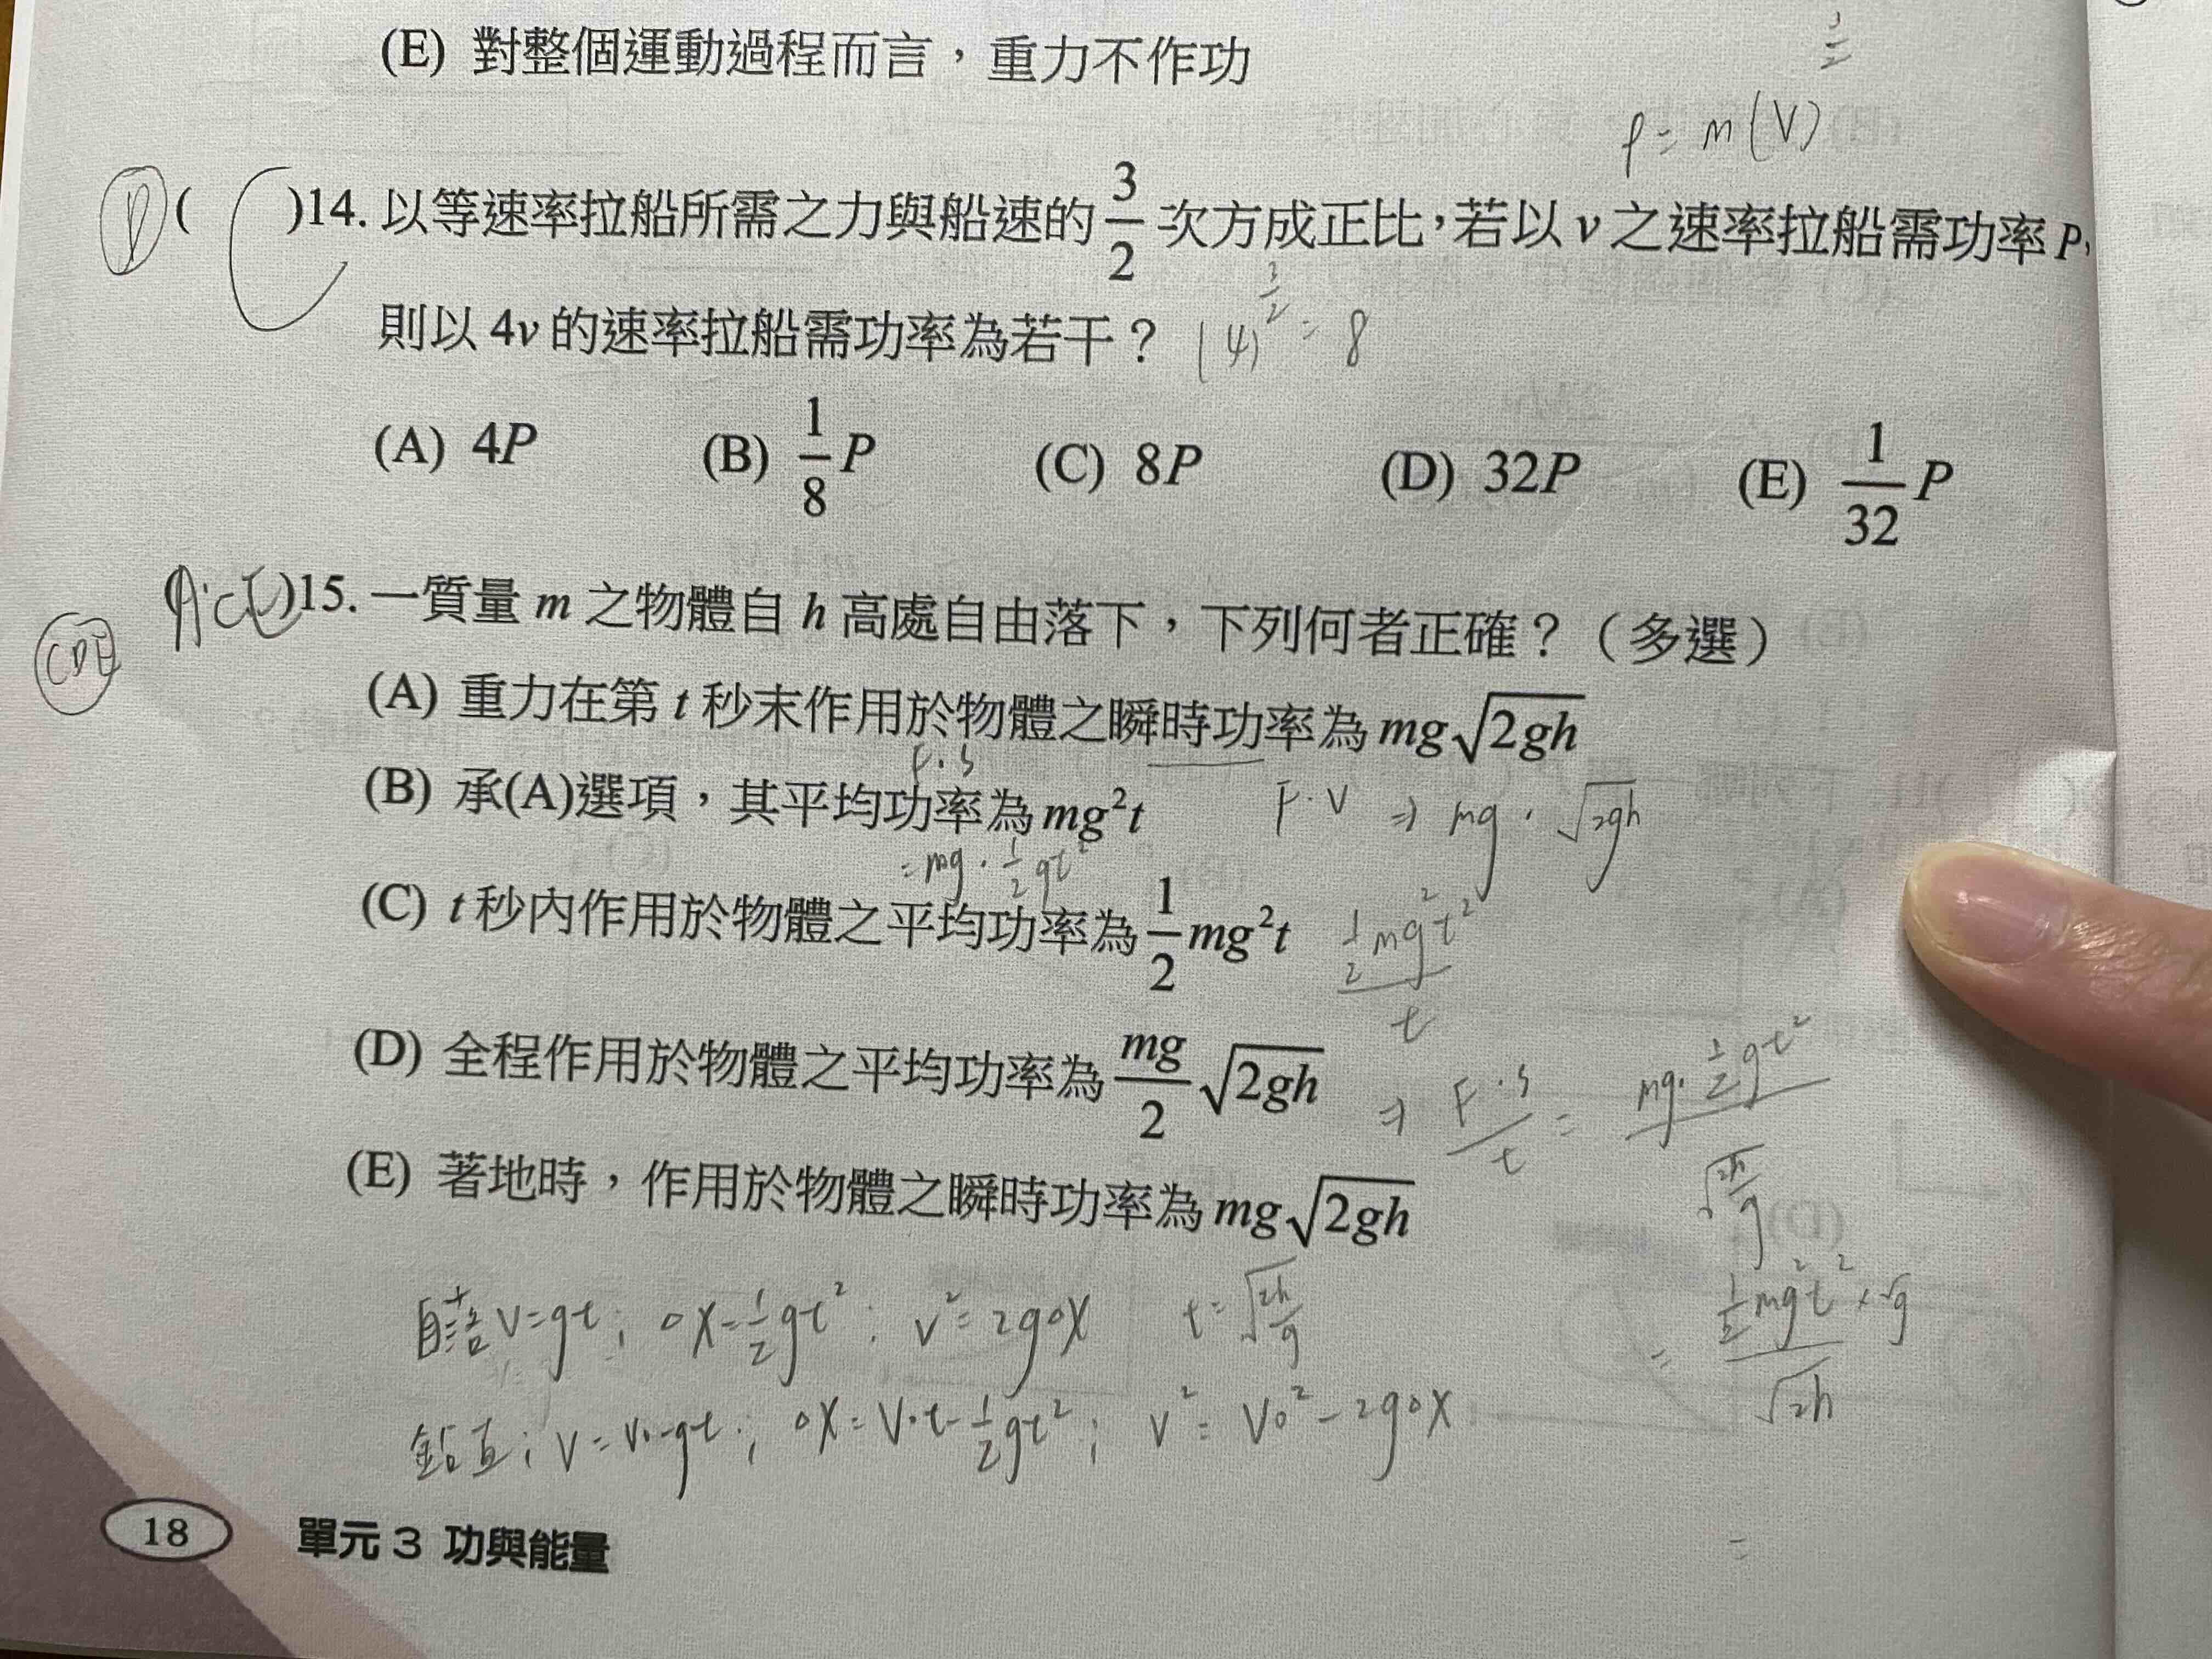 (E) 對整個運動過程而言，重力不作功
3/2
P = m(V)
D ( C )14. 以等速率拉船所需之力與船速的 3/2 次方成正比，若以 v 之速率拉船需功率 P，
則以 4v 的速率拉船需功率為若干？ (4)^3/2 = 8
(A) 4P (B) 1/8 P (C) 8P (D) 32P (E) 1/32 P
CDE (A.C.E)15. 一質量 m 之物體自 h 高處自由落下，下列何者正確？（多選）
(A) 重力在第 t 秒末作用於物體之瞬時功率為 mg√2gh
F·S
(B) 承(A)選項，其平均功率為 mg²t F·V ⇒ mg·√2gh
= mg·1/2 gt²
(C) t 秒內作用於物體之平均功率為 1/2 mg²t 1/2 mg²t² / t
(D) 全程作用於物體之平均功率為 mg/2 √2gh ⇒ F·S / t = mg·1/2 gt² / √2h/g
(E) 著地時，作用於物體之瞬時功率為 mg√2gh
= 1/2 mg²t² × √g / √2h
自落 V=gt; ΔX=1/2 gt²; V²=2gΔX t=√2h/g
鉛直; V=V₀-gt; ΔX=V₀t-1/2 gt²; V²=V₀²-2gΔX
=
18 單元 3 功與能量